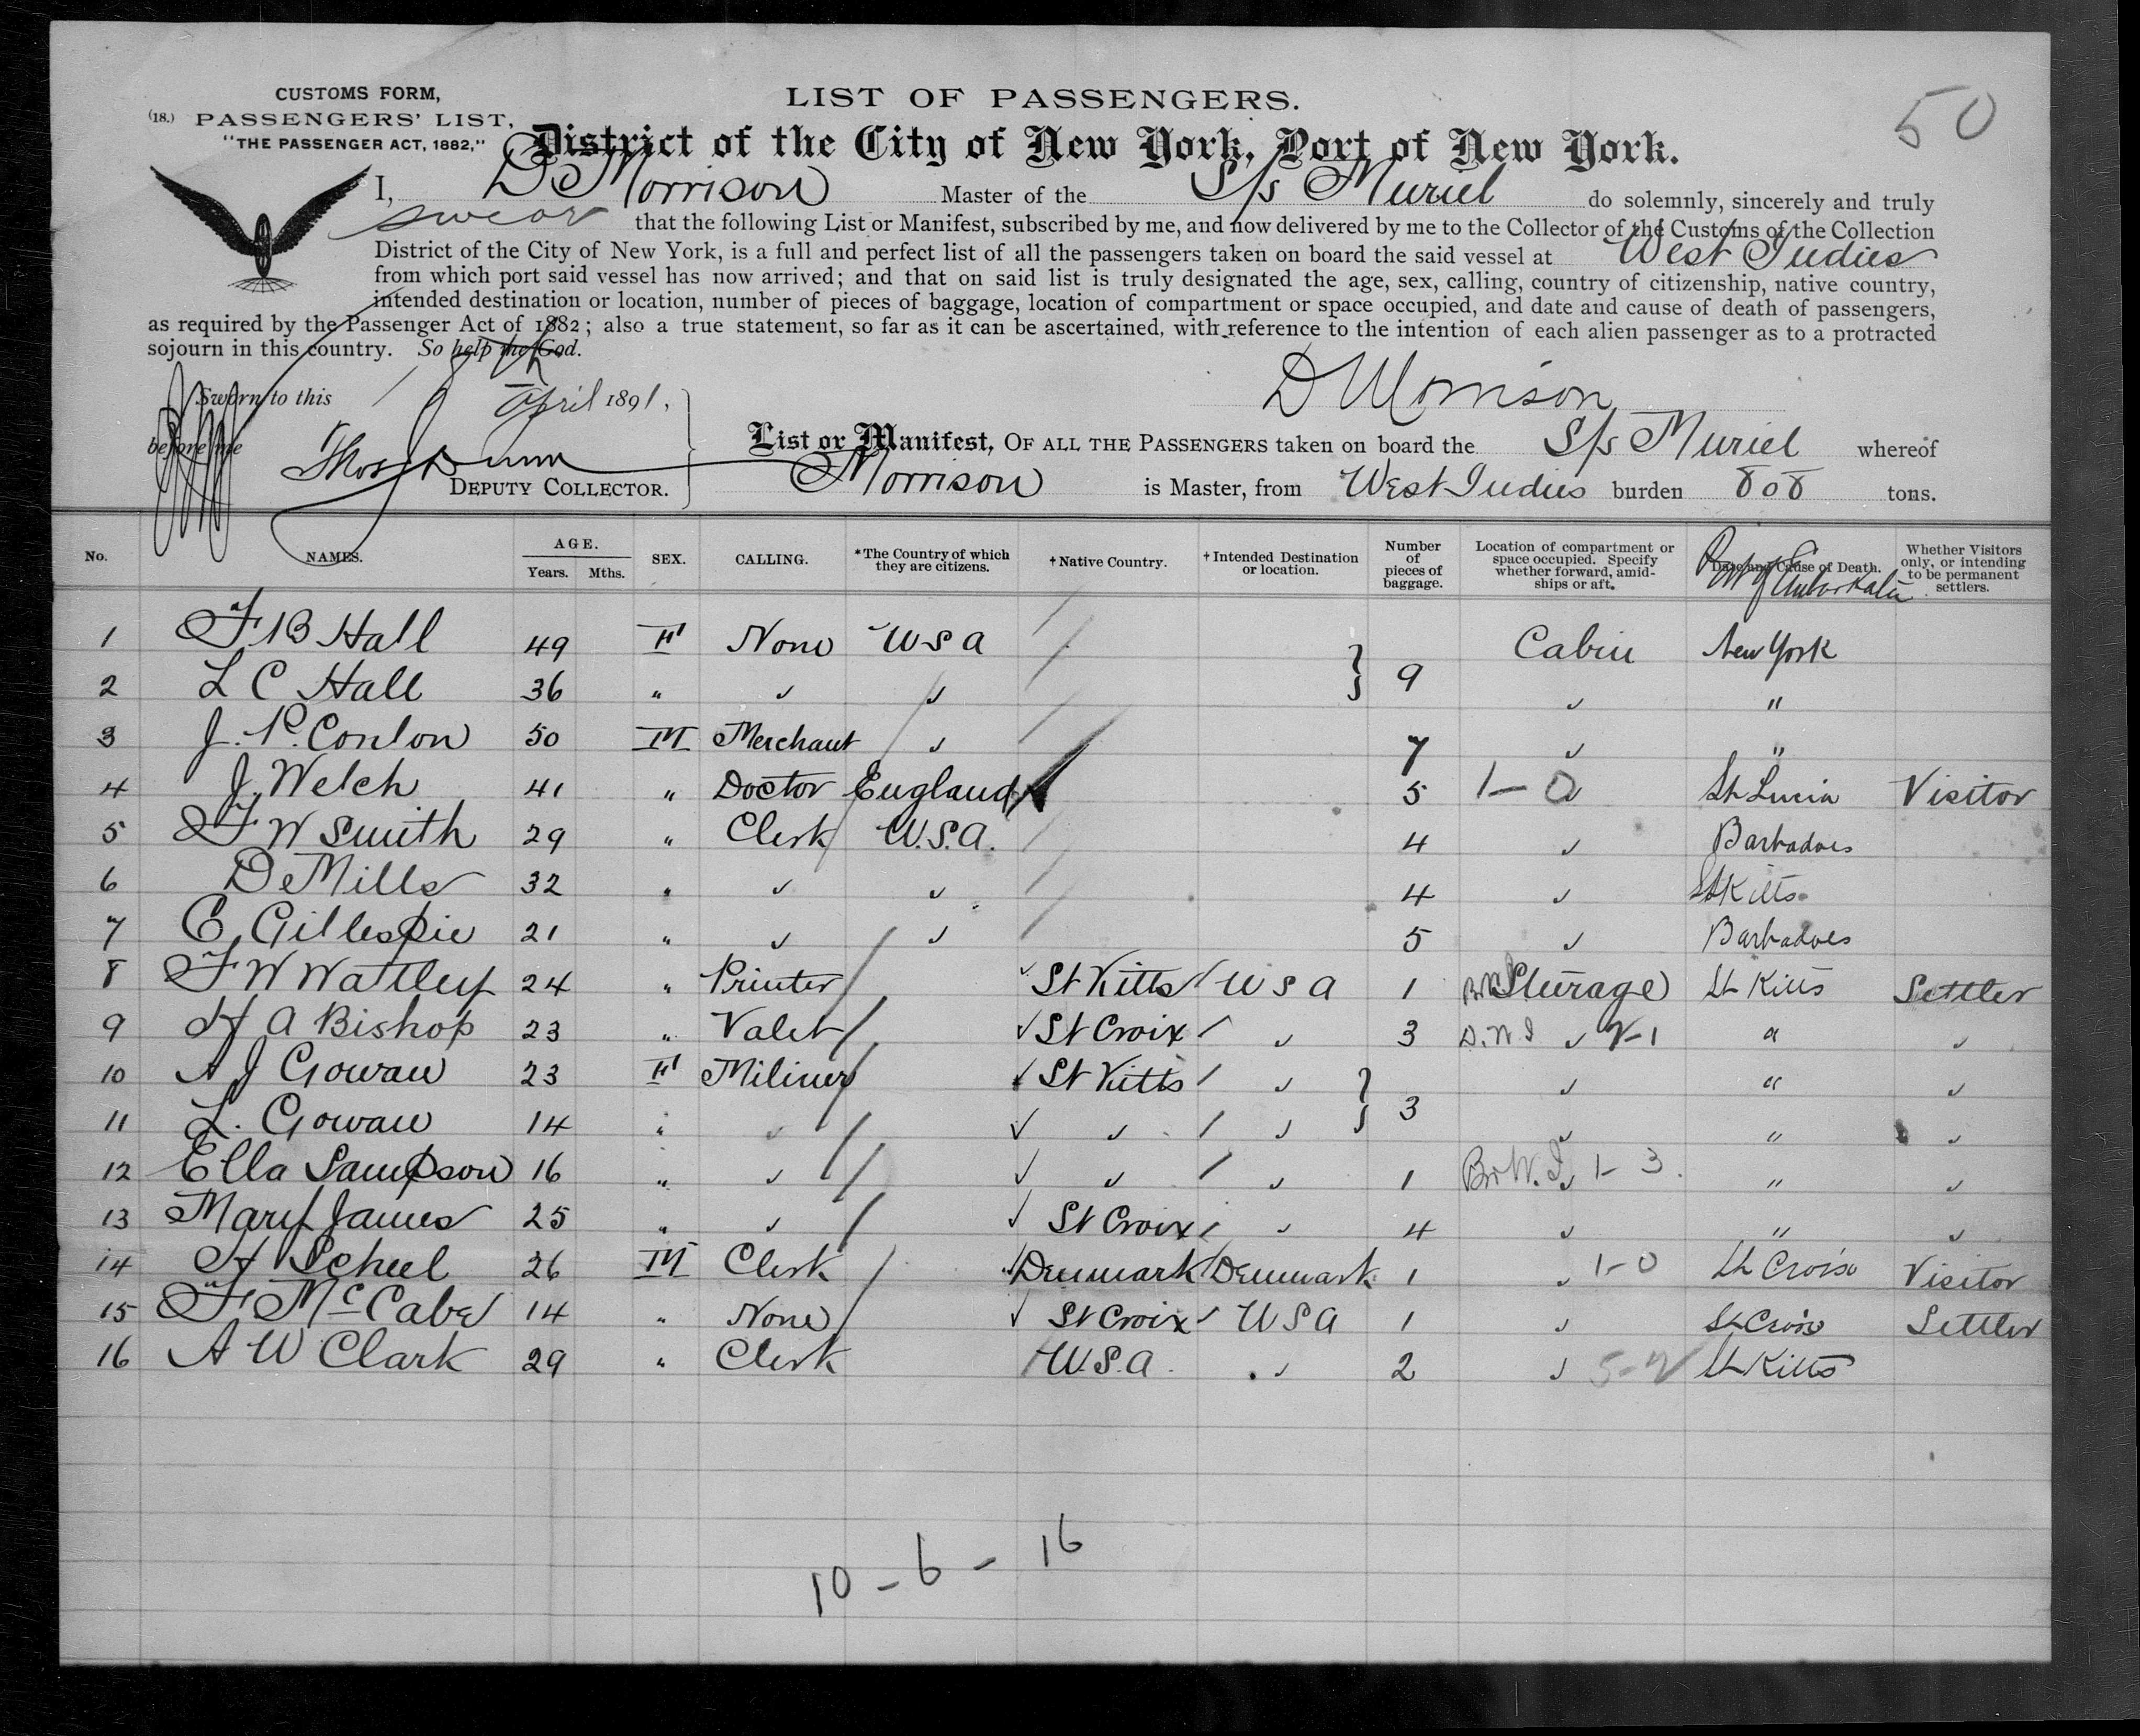 CUSTOMS FORM,
(18.) PASSENGERS' LIST,
"THE PASSENGER ACT, 1882,"
LIST OF PASSENGERS.
50
District of the City of New York, Port of New York.
I, D Morrison Master of the S/s Muriel do solemnly, sincerely and truly
swear that the following List or Manifest, subscribed by me, and now delivered by me to the Collector of the Customs of the Collection
District of the City of New York, is a full and perfect list of all the passengers taken on board the said vessel at West Indies
from which port said vessel has now arrived; and that on said list is truly designated the age, sex, calling, country of citizenship, native country,
intended destination or location, number of pieces of baggage, location of compartment or space occupied, and date and cause of death of passengers,
as required by the Passenger Act of 1882; also a true statement, so far as it can be ascertained, with reference to the intention of each alien passenger as to a protracted
sojourn in this country. So help me God.
D Morrison
Sworn to this April 1891,
before me Thos Dunn
DEPUTY COLLECTOR.
List or Manifest, OF ALL THE PASSENGERS taken on board the S/s Muriel whereof
Morrison is Master, from West Indies burden 808 tons.
No. NAMES. AGE. Years. Mths. SEX. CALLING. *The Country of which they are citizens. †Native Country. †Intended Destination or location. Number of pieces of baggage. Location of compartment or space occupied. Specify whether forward, amidships or aft. Date and Cause of Death. Port of Embarkatn Whether Visitors only, or intending to be permanent settlers.
1 F B Hall 49 F None U S A Cabin New York
2 L C Hall 36 " " " } 9 " "
3 J. P. Conlon 50 M Merchant " 7 " "
4 J. Welch 41 " Doctor England 5 1-0 " St Lucia Visitor
5 F W Smith 29 " Clerk U.S.A. 4 " Barbadoes
6 D Mills 32 " " " 4 " St Kitts
7 C Gillespie 21 " " " 5 " Barbadoes
8 F W Wattley 24 " Printer St Kitts U S A 1 Steurage St Kitts Settler
9 H A Bishop 23 " Valet St Croix " 3 D.W.I " 2-1 " "
10 A J Gowan 23 F Miliner St Kitts " " " "
11 L. Gowan 14 " " " " } 3 " " "
12 Ella Sampson 16 " " " " 1 Br W. I. " 1-3 " "
13 Mary James 25 " " St Croix " 4 " " "
14 H Scheel 26 M Clerk Denmark Denmark 1 " 1-0 St Croix Visitor
15 F McCabe 14 " None St Croix U S A 1 " St Croix Settler
16 A W Clark 29 " Clerk U.S.A. " 2 " St Kitts
10 - 6 - 16